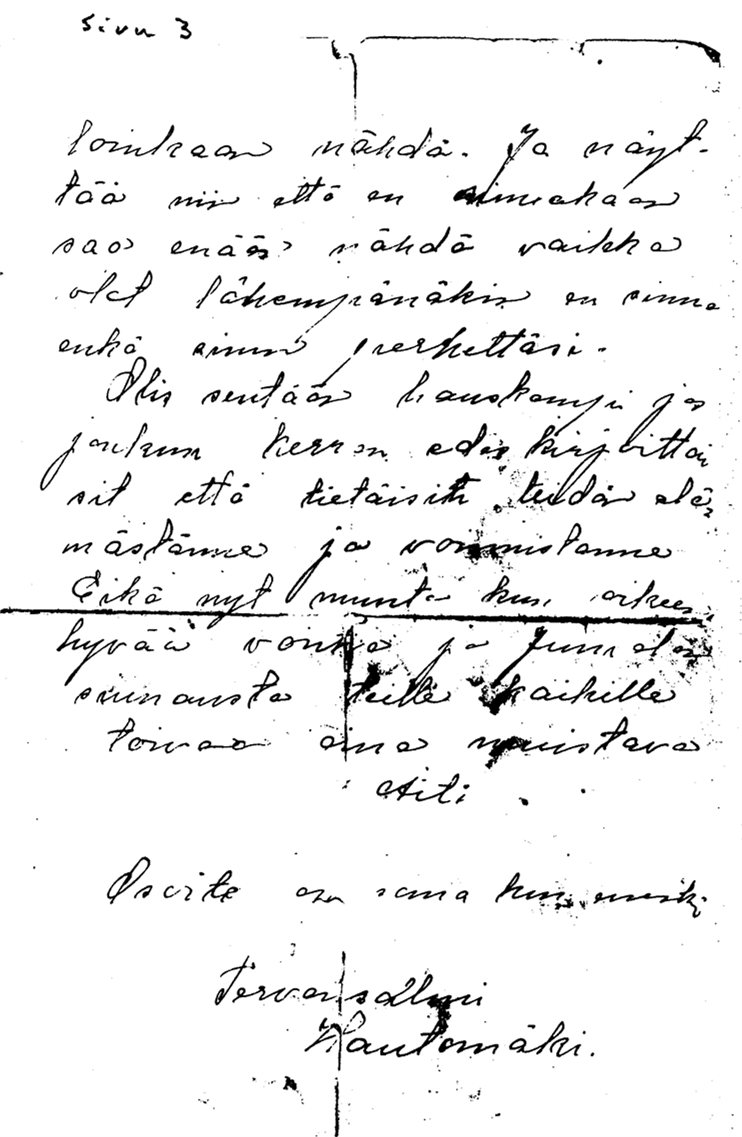 Sivu 3
loinkaan nähdä. Ja näyt-
tää niin että en sinuakaan
saa enään nähdä vaikka
olet lähempänäkin en sinua
enkä sinun perhettäsi.
Olis sentään hauskempi jos
jonkun kerran edes kirjoittai
sit että tietäisin teidän elä,
mästänne ja voinnistanne
Eikä nyt muuta kun oikeen
hyvää vointia ja Jumalan
siunausta teille kaikille
toivoo aina muistava
Äiti.
Osoite on sama kun ennenki
Tervonsalmi
Hautomäki.